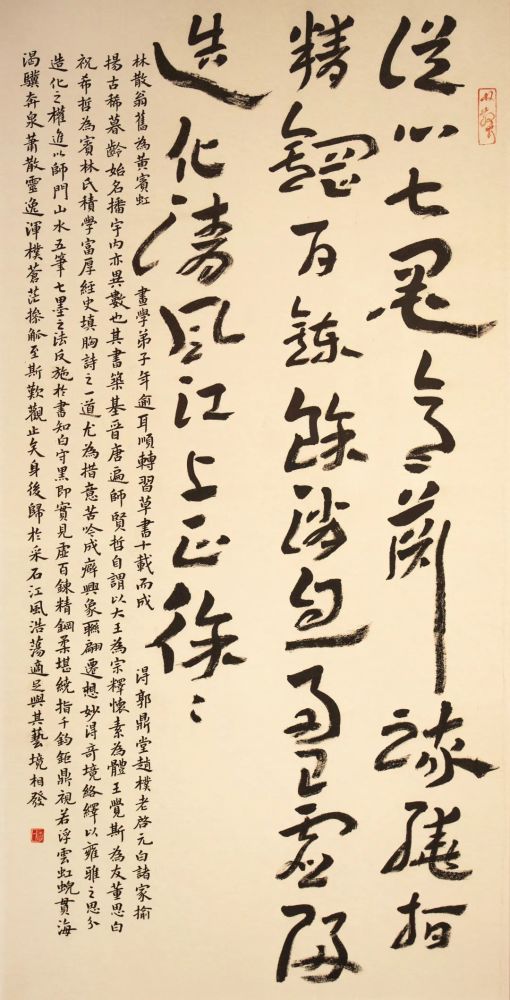 從心七墨蕭疎繞指
精鋼百鍊餘已虛
造化濤風江上正徐〻
林散翁舊為黃賓虹 畫學弟子年逾耳順轉習草書十載而成 得郭鼎堂趙樸老啓元白諸家揄
揚古稀暮齡始名播宇內亦異數也其書築基晉唐遍師賢哲自謂以大王為宗釋懷素為體王覺斯為友董思白
祝希哲為賓林氏積學富厚經史填胸詩之一道尤為措意苦吟成癖興象聯翩遷想妙得奇境絡繹以雍雅之思分
造化之權進以師門山水五筆七墨之法反施於書知白守黑即實見虛百鍊精鋼柔堪繞指千鈞鉅鼎視若浮雲虹蜺貫海
渴驥奔泉蕭散靈逸渾樸蒼茫操觚至斯歎觀止矣身後歸於采石江風浩蕩適足與其藝境相發